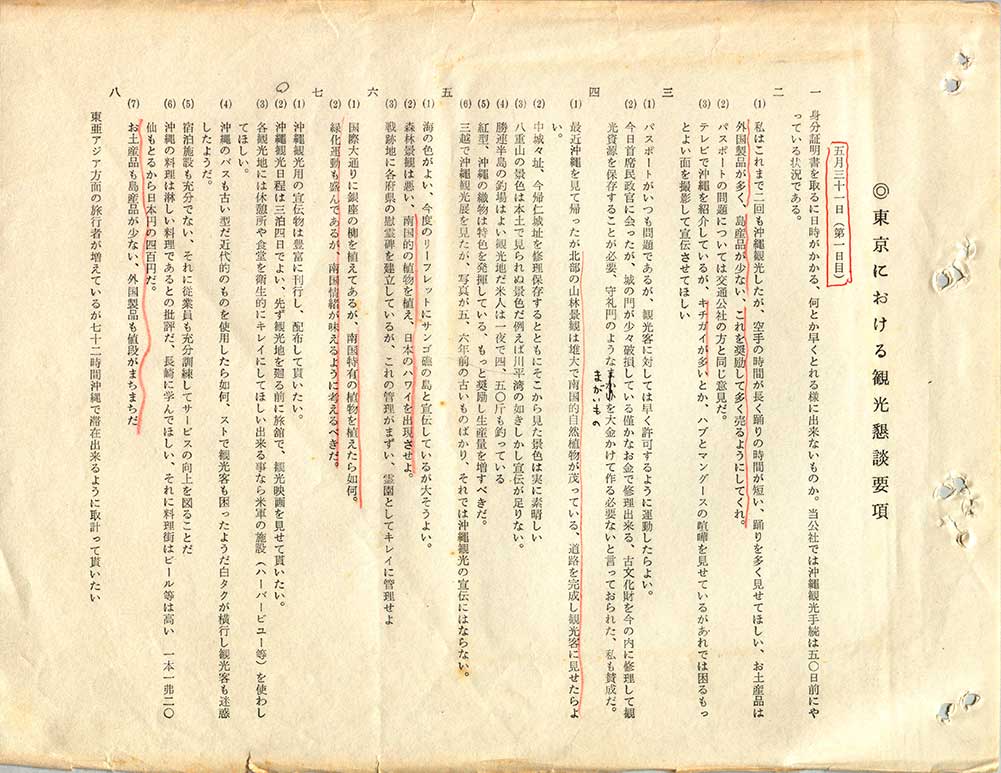 ◎東京における観光懇談要項
五月三十一日(第一日目)
一 身分証明書を取るに日時がかかる、何とか早くとれる様に出来ないものか。当公社では沖縄観光手続は五〇日前にや
っている状況である。
二
(1) 私はこれまで二回も沖縄観光したが、空手の時間が長く踊りの時間が短い、踊りを多く見せてほしい、お土産品は
外国製品が多く、島産品が少ない、これを奨励して多く売るようにしてくれ。
(2) パスポートの問題については交通公社の方と同じ意見だ。
(3) テレビで沖縄を紹介しているが、キチガイが多いとか、ハブとマングースの喧嘩を見せているがあれでは困るもっ
とよい面を撮影して宣伝させてほしい
三
(1) パスポートがいつも問題であるが、観光客に対しては早く許可するように運動したらよい。
(2) 今日首席民政官に会ったが、城の門が少々破損している僅かなお金で修理出来る、古文化財を今の内に修理して観
光資源を保存することが必要、守礼門のようなまがいものを大金かけて作る必要ないと言っておられた、私も賛成だ。
四
(1) 最近沖縄を見て帰ったが北部の山林景観は雄大で南国的自然植物が茂っている、道路を完成し観光客に見せたらよ
い。
(2) 中城々址、今帰仁城址を修理保存するとともにそこから見た景色は実に素晴しい
(3) 八重山の景色は本土で見られぬ景色だ例えば川平湾の如きしかし宣伝が足りない。
(4) 勝連半島の釣場はよい観光地だ米人は一夜で四、五〇斤も釣っている
(5) 紅型、沖縄の織物は特色を発揮している、もっと奨励し生産量を増すべきだ。
(6) 三越で沖縄観光展を見たが、写真が五、六年前の古いものばかり、それでは沖縄観光の宣伝にはならない。
五
(1) 海の色がよい、今度のリーフレットにサンゴ礁の島と宣伝しているが大そうよい。
(2) 森林景観は悪い、南国的の植物を植え、日本のハワイを出現させよ。
(3) 戦跡地に各府県の慰霊碑を建立しているが、これの管理がまずい、霊園としてキレイに管理せよ
六
(1) 国際大通りに銀座の柳を植えてあるが、南国特有の植物を植えたら如何。
(2) 緑化運動も盛んであるが、南国情緒が味えるように考えるべきだ。
七
(1) 沖縄観光用の宣伝物は豊富に刊行し、配布して貰いたい。
(2) 沖縄観光日程は三泊四日でよい、先ず観光地を廻る前に旅舘で、観光映画を見せて貰いたい。
(3) 各観光地には休憩所や食堂を衛生的にキレイにしてほしい出来る事なら米軍の施設(ハーバービユー等)を使わし
てほしい。
(4) 沖縄のバスも古い型だ近代的のものを使用したら如何、ストで観光客も困ったようだ白タクが横行し観光客も迷惑
したようだ。
(5) 宿泊施設も充分でない、それに従業員も充分訓練してサービスの向上を図ることだ
(6) 沖縄の料理は淋しい料理であるとの批評だ、長崎に学んでほしい、それに料理街はビール等は高い 一本一弗二〇
仙もとるから日本円の四百円だ。
(7) お土産品も島産品が少ない、外国製品も値段がまちまちだ
八 東亜アジア方面の旅行者が増えているが七十二時間沖縄で滞在出来るように取計って貰いたい